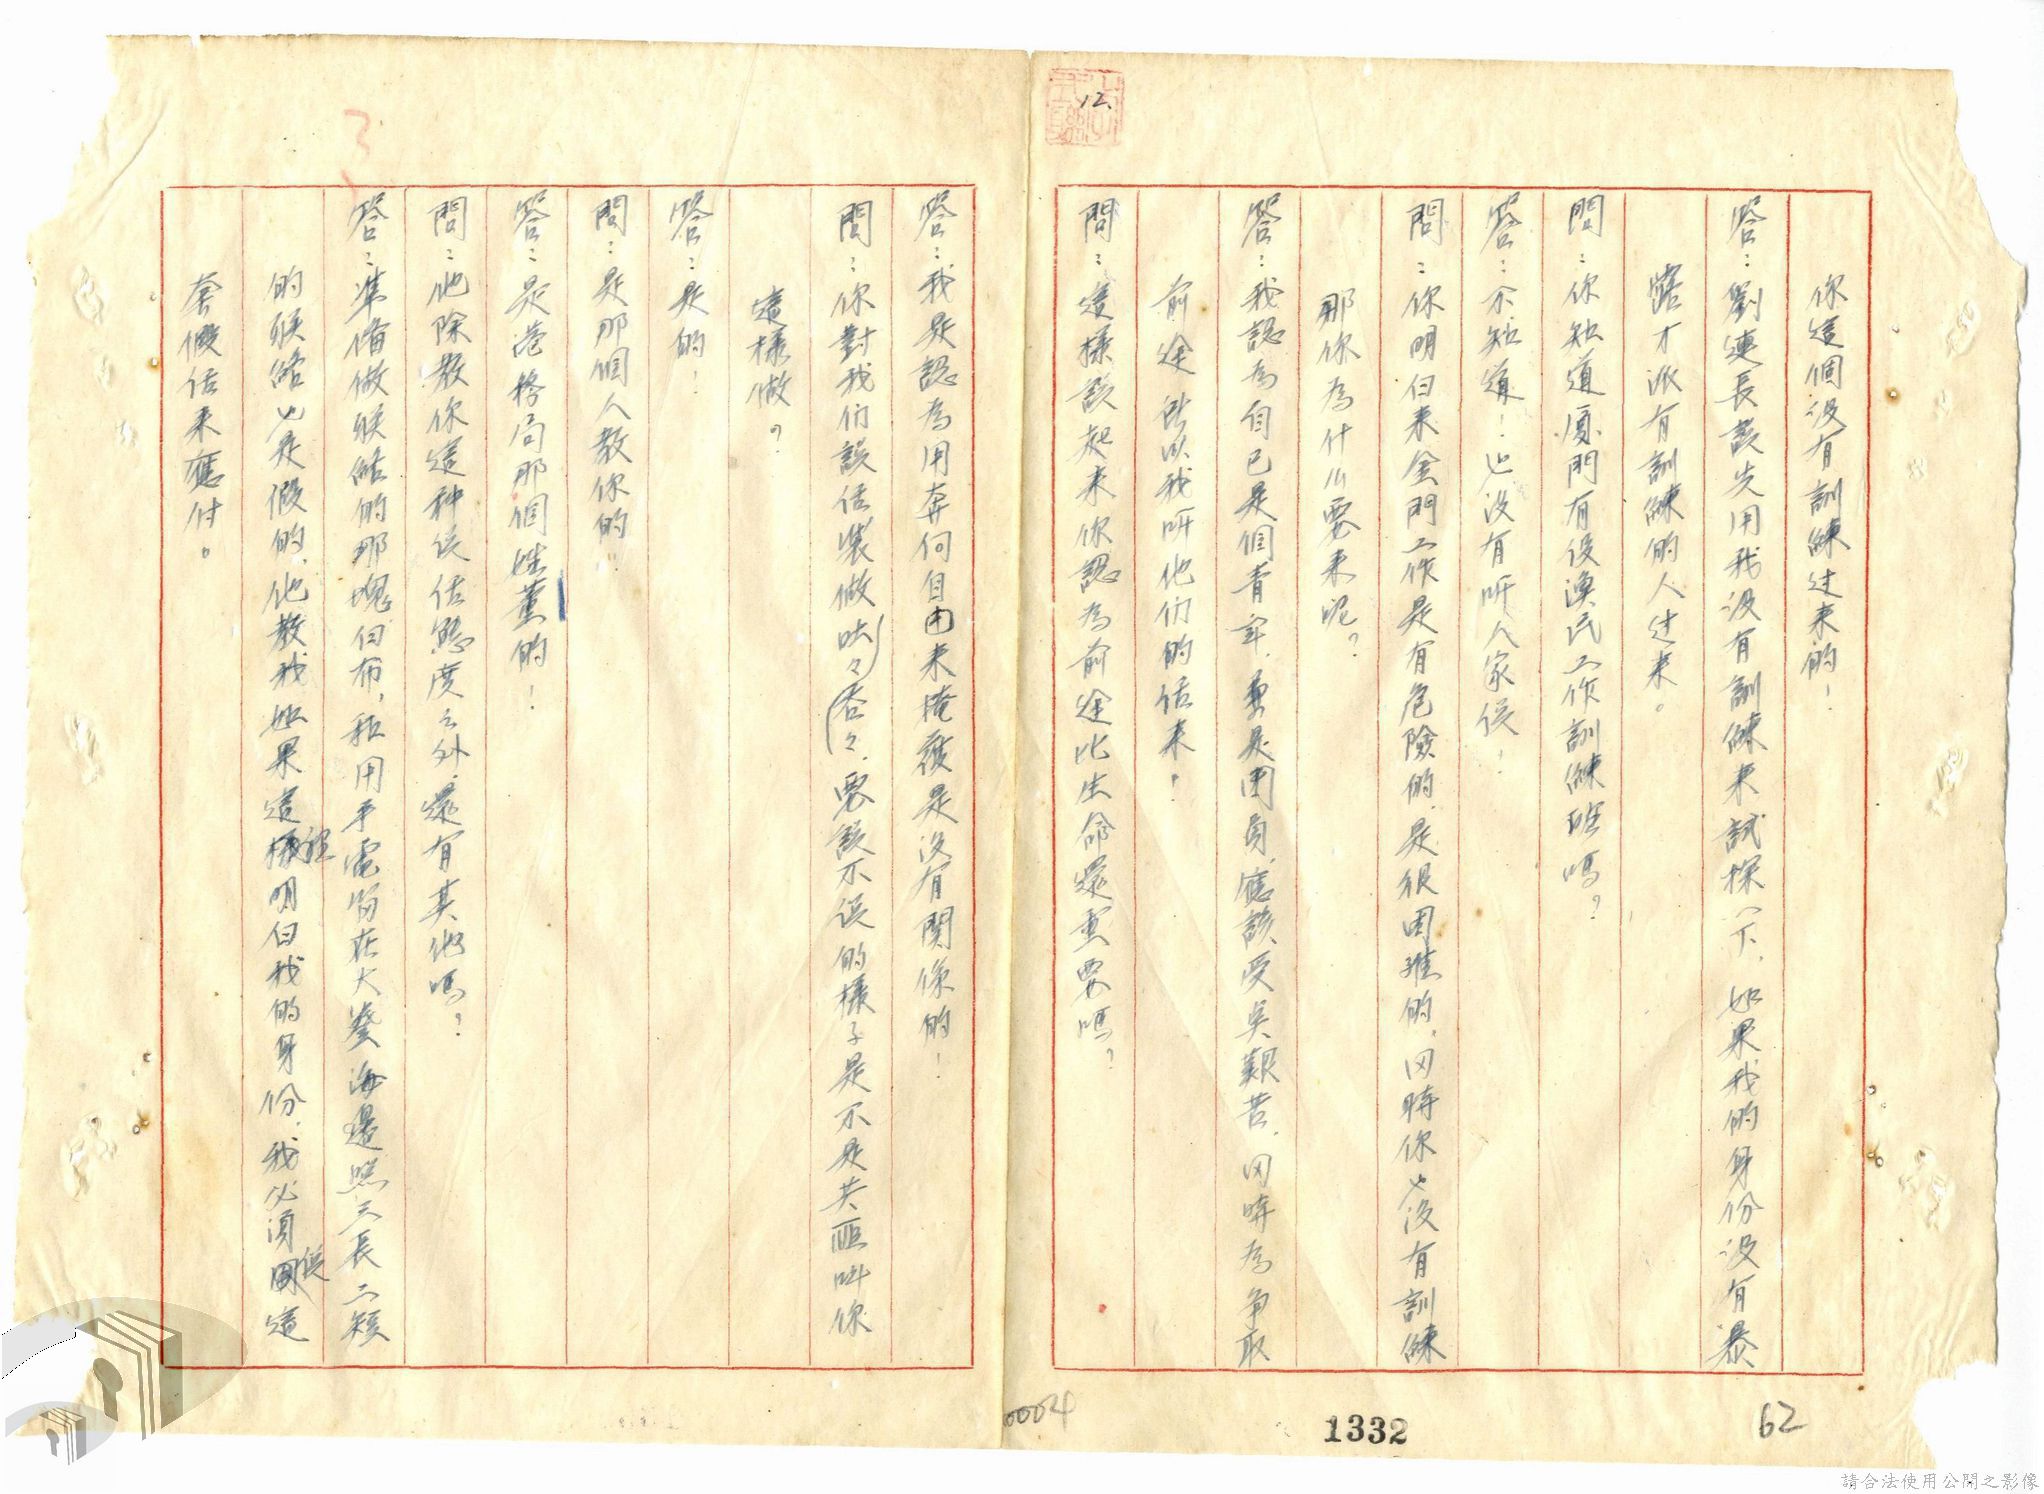 12.
你這個沒有訓練过来的！
答：劉連長說先用我沒有訓練来試探一下，如果我的身份沒有暴
露才派有訓練的人过来。
問：你知道厦門有设漁民工作訓練班嗎？
答：不知道！也沒有听人家说！
問：你明白来金門工作是有危險的，是很困难的，同時你也沒有訓練
那你為什么要来呢？
答：我認為自己是個青年，更是團員，應該受吴艱苦，同時為争取
前途所以我听他们的话来！
問：這樣說起来你認為前途比生命還重要嗎？
答：我是認為用奔向自由来掩護是沒有関係的！
問：你對我们說话裝做吐々吞々，要說不说的樣子是不是共匪叫你
這樣做？
答：是的！
問：是那個人教你的！
答：是港務局那個姓董的！
問：他除教你這种说话態度之外，還有其他嗎？
答：準備做联絡的那塊白布，和用手電筒在大嶝海邊照三長二短
的联絡也是假的，他教我如果這樣程明白我的身份，我必須用说這
套假话来應付。
0004
1332
62
請合法使用公開之影像